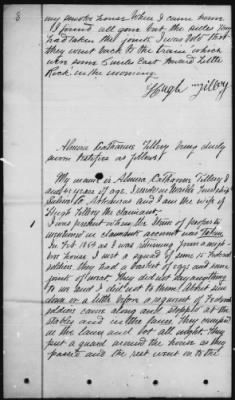 my smoke house When I came home
I found all gone but the sides they
had taken the joints I was told that
they went back to the train which
was some 5 miles East toward Little
Rock in the morning
Hugh Tillery
Almira Catharine Tillery being duly
sworn testifies as follows
My name is Almira Catharine Tillery I
and years of age I reside in Township
County Arkansas and I am the wife of
Hugh Tillery the claimant.
I was present when the items of property
mentioned in claimants account was taken
In Feb 1864 as I was returning from a neigh-
bor house I met a squad of some 15 Federal
soldiers they had a basket of eggs and some
of meat. They did not say anything
to me and I did not to them. About sun
down or a little before a regiment of Federal
soldiers came along and stopped at the
stables and in the lane. They camped
in the lane and lot all night. They
put a guard around the house as they
passed and the rest went in to the